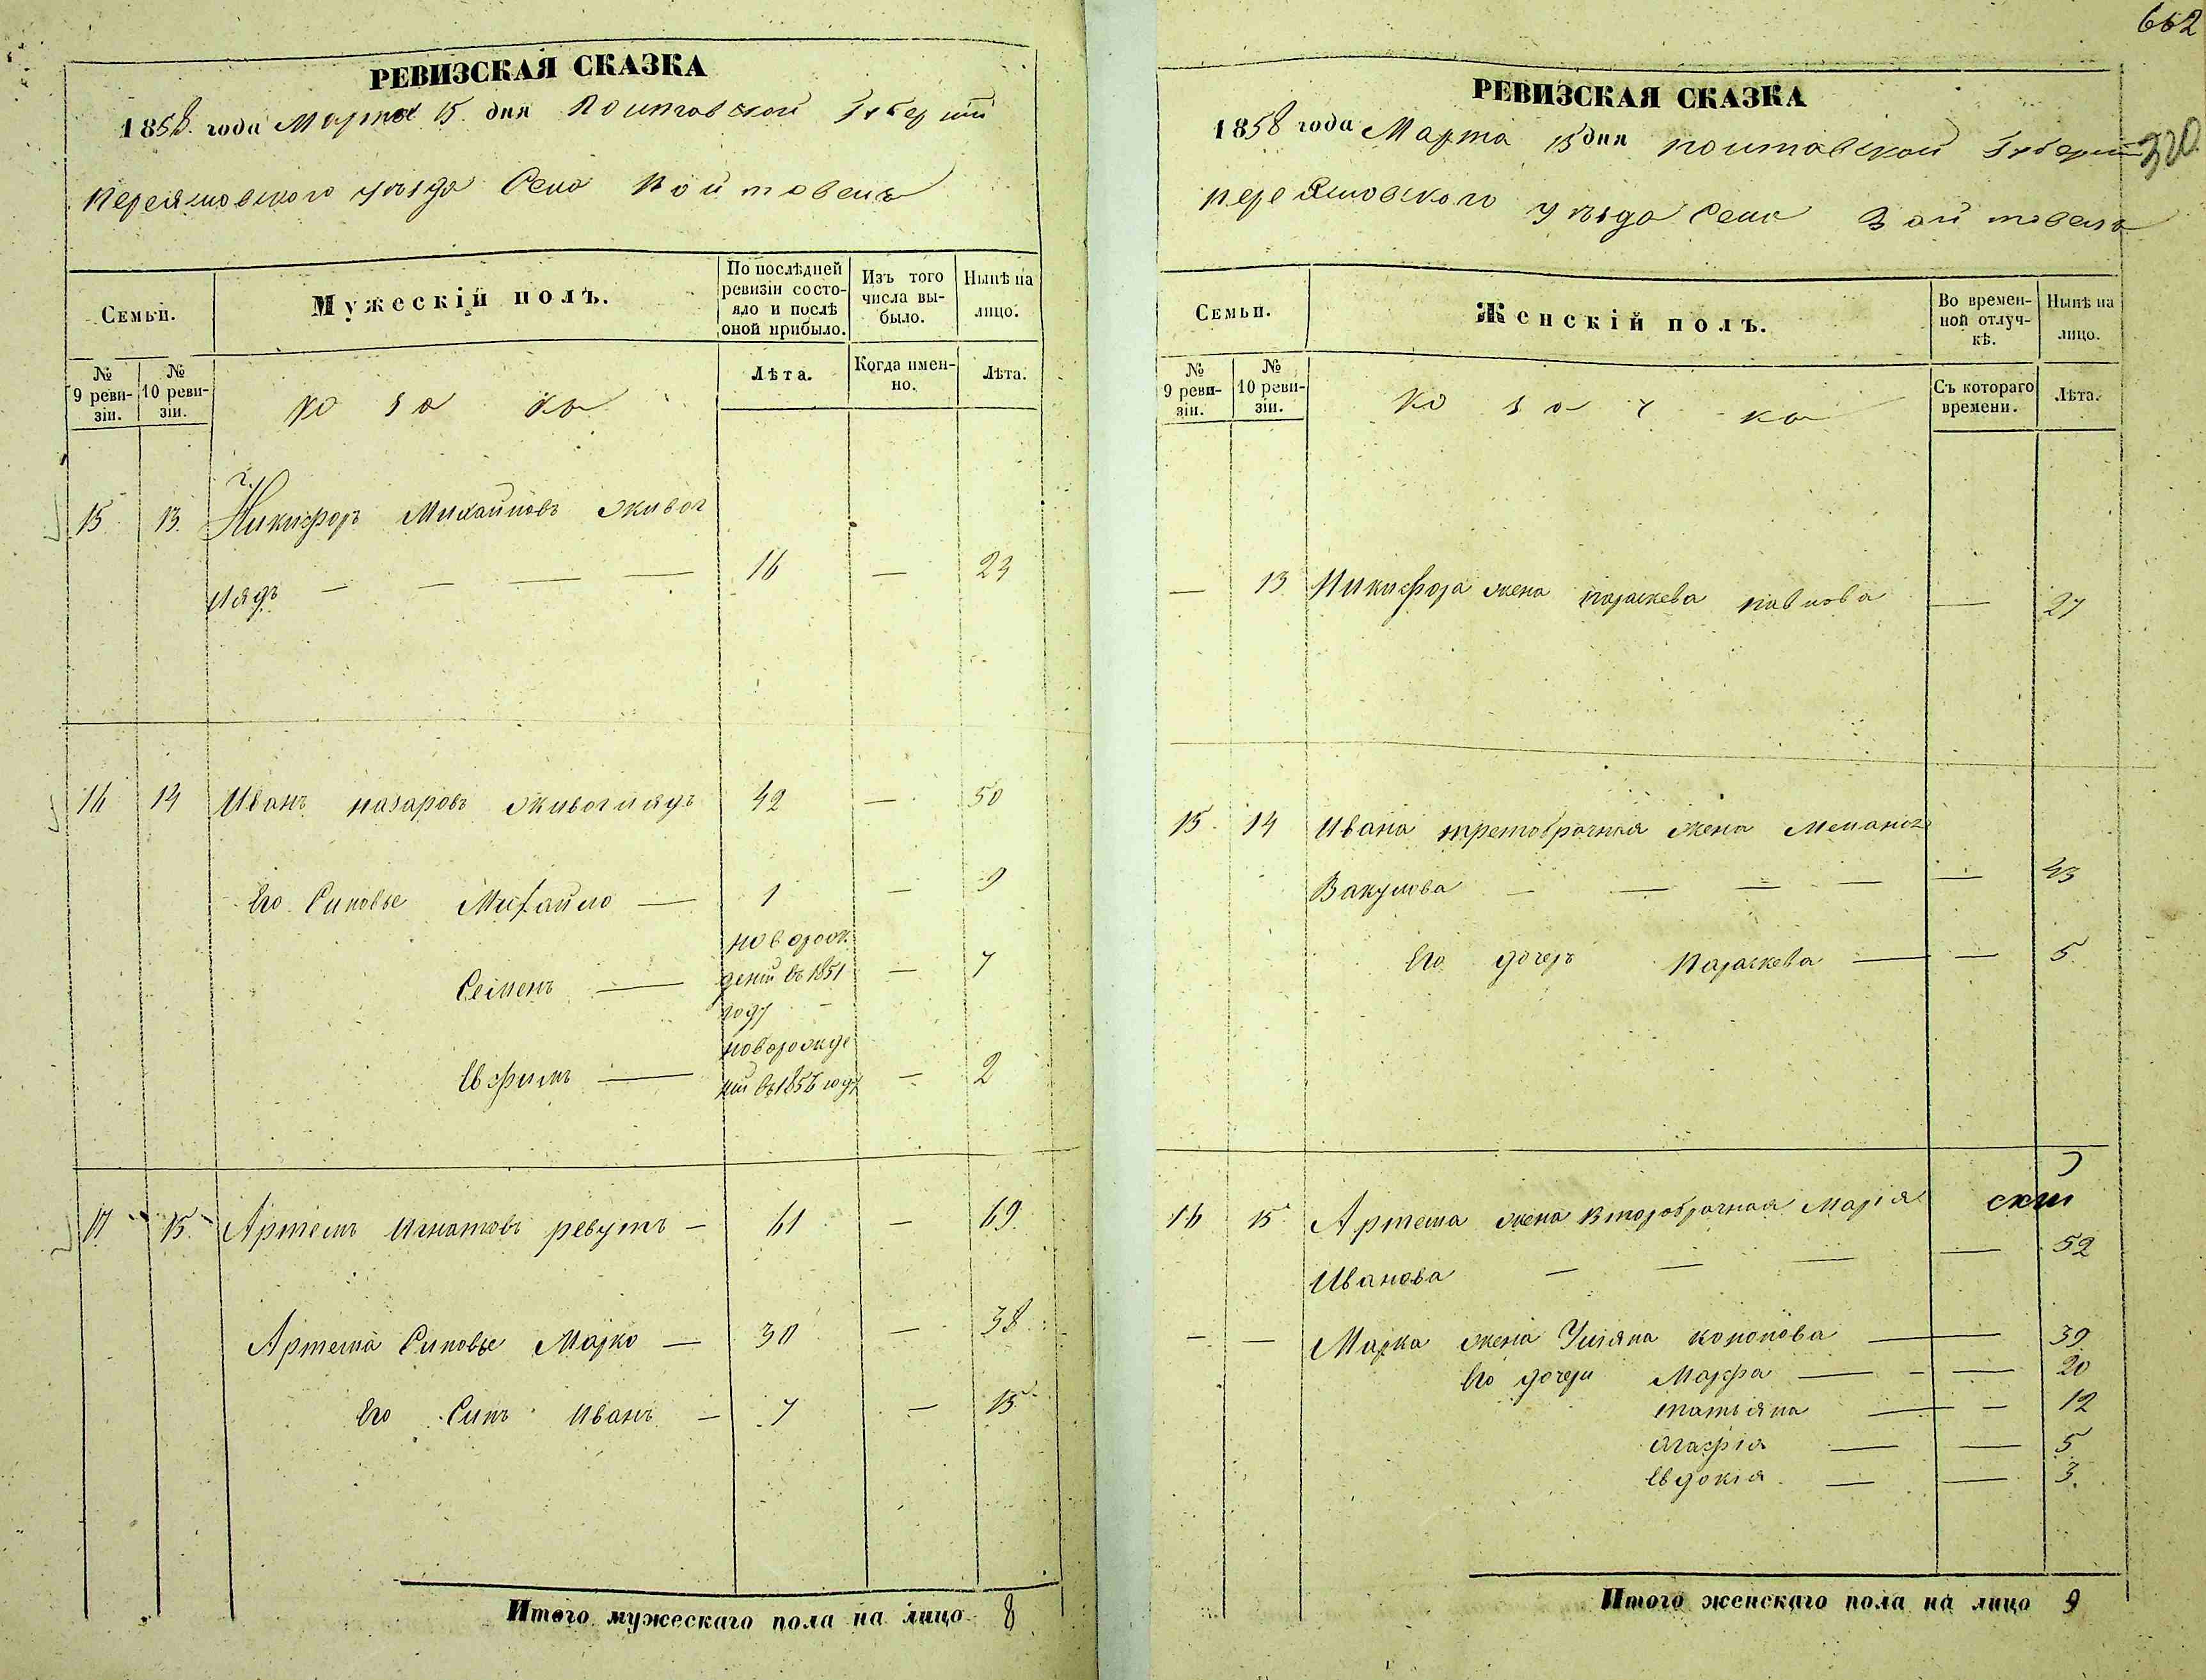 РЕВИЗСКАЯ СКАЗКА
1858 года Марта 15 дня Полтавской Губерніи
Переясловского уѣзда Села Войтовецъ
Семьи.
Мужескій полъ.
По послѣдней ревизіи состояло и послѣ оной прибыло.
Изъ того числа выбыло.
Нынѣ на лицо.
№ 9 ревизіи.
№ 10 ревизіи.
Козаки
Лѣта.
Когда именно.
Лѣта.
15 13. Никифоръ Михайловъ Живог
лядъ — — — — 16 — 23
16 14 Иванъ Назаровъ Живоглядъ 42 — 50
Его Сыновье Михайло — 1 — 9
Семенъ — новорож
деній въ 1851 — 7
году
Ефимъ — новорожде
ній въ 1856 году — 2
17 15. Артемъ Игнатовъ Ревутъ — 61 — 69.
Артема Сыновье Марко — 30 — 38
Его Сынъ Иванъ — 7 — 15.
Итого мужескаго пола на лицо 8
662
320
РЕВИЗСКАЯ СКАЗКА
1858 года Марта 15 дня Полтавской Губерніи
Переясловского Уѣзда Села Войтовецъ
Семьи.
Женскій полъ.
Во временной отлучкѣ.
Нынѣ на лицо.
№ 9 ревизіи.
№ 10 ревизіи.
Козачка
Съ котораго времени.
Лѣта.
— 13 Никифора жена Параскева Павлова — 27
15. 14 Ивана третобрачная жена Меланія
Вакулова — — — — — 43
Его дочеръ Параскева — — 5.
16 15. Артема жена Второбрачная Марія
Иванова — — — — 52
— — Марка жена Уліяна Кононова — 39
Его дочери Марфа — — — 20
Татьяна — — 12
Агафія — — 5
Евдокія — — 3.
Итого женскаго пола на лицо 9